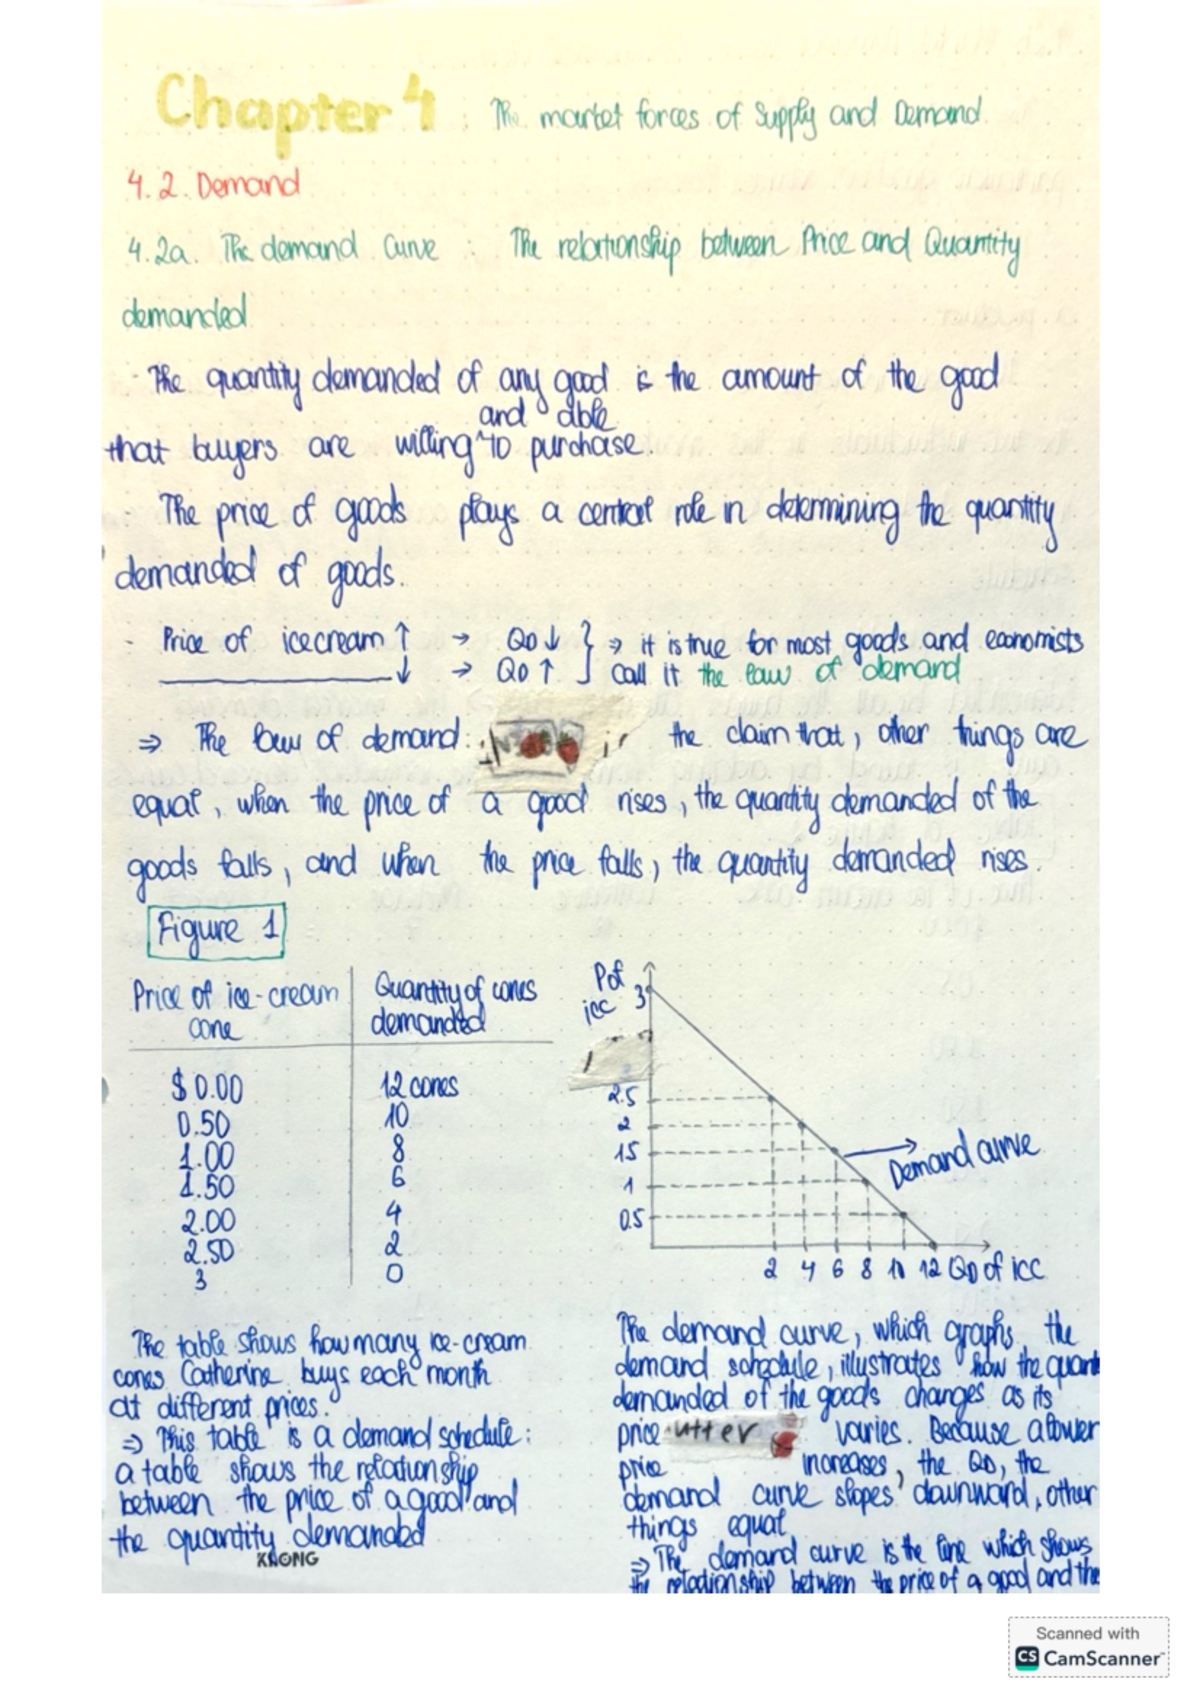 Chapter 4 : The market forces of Supply and Demand.
4.2. Demand
4.2a. The demand curve : The relationship between Price and Quantity
demanded
- The quantity demanded of any good is the amount of the good
and able
that buyers are willing ^ to purchase.
The price of goods plays a central role in determining the quantity
demanded of goods.
- Price of ice cream ↑ → QD ↓ } ⇒ it is true for most goods and economists
↓ → QD ↑ call it the law of demand
⇒ The law of demand : the claim that, other things are
equal, when the price of a good rises, the quantity demanded of the
goods falls, and when the price falls, the quantity demanded rises.
Figure 1
Price of ice-cream cone
Quantity of cones demanded
$ 0.00 12 cones
0.50 10
1.00 8
1.50 6
2.00 4
2.50 2
3 0
P of
icc 3
2.5
2
1.5
1
0.5
Demand curve
2 4 6 8 10 12 QD of icc
The table shows how many ice-cream
cones Catherine buys each month
at different prices.
⇒ This table is a demand schedule:
a table shows the relationship
between the price of a good and
the quantity demanded
KLONG
The demand curve, which graphs the
demand schedule, illustrates how the quant
demanded of the goods changes as its
price utter varies. Because a lower
price increases, the QD, the
demand curve slopes downward, other
things equal
⇒ The demand curve is the line which shows
the relationship between the price of a good and the
Scanned with
CS CamScanner